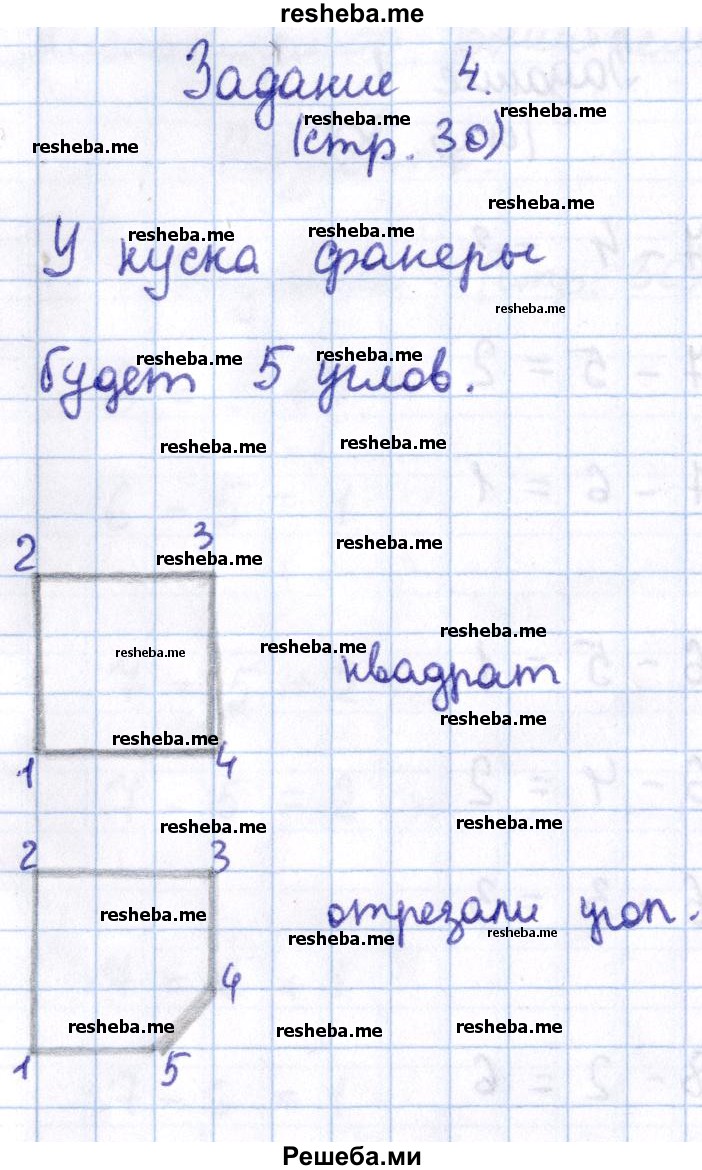 resheba.me
Задание 4.
resheba.me
resheba.me
resheba.me
(стр. 30)
resheba.me
resheba.me
resheba.me
У куска фанеры
resheba.me
resheba.me
resheba.me
будет 5 углов.
resheba.me
resheba.me
7 - 5 = 2
7 - 6 = 1
2 3
resheba.me
resheba.me
resheba.me
resheba.me
resheba.me
квадрат
resheba.me
resheba.me
1 4
resheba.me
resheba.me
2 3
resheba.me
отрезали угол.
resheba.me
resheba.me
4
resheba.me
resheba.me
resheba.me
1 5
8 - 2 = 6
Решеба.ми